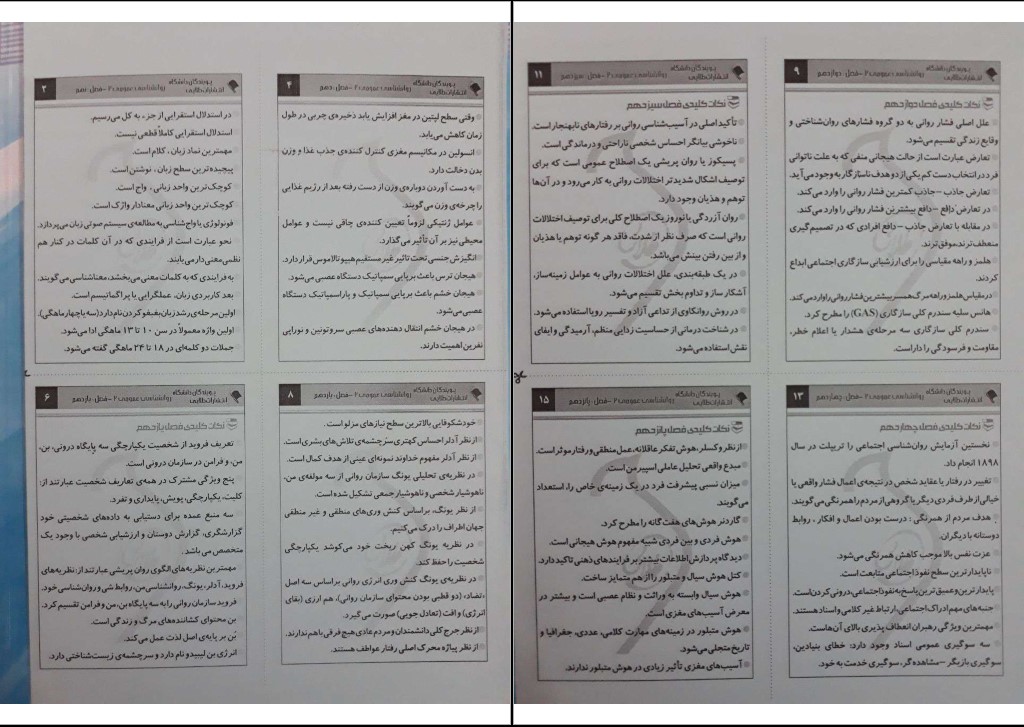 پویندگان دانشگاه
انتشارات طلایی
روانشناسی عمومی ۲ - فصل نهم
۲
در استدلال استقرایی از جزء به کل می‌رسیم.
استدلال استقرایی کاملاً قطعی نیست.
مهمترین نماد زبان، کلام است.
پیچیده‌ترین سطح زبان، نوشتن است.
کوچک‌ترین واحد زبانی، واج است.
کوچک‌ترین واحد زبانی معنادار واژک است.
فونولوژی یا واج‌شناسی به مطالعه‌ی سیستم صوتی زبان می‌پردازد.
نحو عبارت است از فرایندی که در آن کلمات در کنار هم
نظمی معنی‌دار می‌یابند.
به فرایندی که به کلمات معنی می‌بخشد، معناشناسی می‌گویند.
بعد کاربردی زبان، عملگرایی یا پراگماتیسم است.
اولین مرحله‌ی رشد زبان بغبغو کردن نام دارد (سه یا چهار ماهگی).
اولین واژه معمولاً در سن ۱۰ تا ۱۳ ماهگی ادا می‌شود.
جملات دو کلمه‌ای در ۱۸ تا ۲۴ ماهگی گفته می‌شود.
پویندگان دانشگاه
انتشارات طلایی
روانشناسی عمومی ۲ - فصل دهم
۴
وقتی سطح لپتین در مغز افزایش یابد ذخیره‌ی چربی در طول
زمان کاهش می‌یابد.
انسولین در مکانیسم مغزی کنترل کننده‌ی جذب غذا و وزن
بدن دخالت دارد.
به دست آوردن دوباره‌ی وزن از دست رفته بعد از رژیم غذایی
را چرخه‌ی وزن می‌گویند.
عوامل ژنتیکی لزوماً تعیین کننده‌ی چاقی نیست و عوامل
محیطی نیز بر آن تأثیر می‌گذارد.
انگیزش جنسی تحت تاثیر غیر مستقیم هیپوتالاموس قرار دارد.
هیجان ترس باعث برپایی سمپاتیک دستگاه عصبی می‌شود.
هیجان خشم باعث برپایی سمپاتیک و پاراسمپاتیک دستگاه
عصبی می‌شود.
در هیجان خشم انتقال دهنده‌های عصبی سروتونین و نوراپی
نفرین اهمیت دارند.
پویندگان دانشگاه
انتشارات طلایی
روانشناسی عمومی ۲ - فصل یازدهم
۶
نکات کلیدی فصل یازدهم
تعریف فروید از شخصیت یکپارچگی سه پایگاه درونی، بن،
من، و فرامن در سازمان درونی است.
پنج ویژگی مشترک در همه‌ی تعاریف شخصیت عبارتند از:
کلیت، یکپارچگی، پویش، پایداری و تفرد.
سه منبع عمده برای دستیابی به داده‌های شخصیتی خود
گزارشگری، گزارش دوستان و ارزشیابی شخصی با وجود یک
متخصص می‌باشد.
مهمترین نظریه‌های الگوی روان پریشی عبارتند از: نظریه‌های
فروید، آدلر، یونگ، روانشناسی من، روابط شی و روان‌شناسی خود.
فروید سازمان روانی را به سه پایگاه بن، من و فرامن تقسیم کرد.
بن محتوای کشاننده‌های مرگ و زندگی است.
بُن بر پایه‌ی اصل لذت عمل می‌کند.
انرژی بن لیبیدو نام دارد و سرچشمه‌ی زیست‌شناختی دارد.
پویندگان دانشگاه
انتشارات طلایی
روانشناسی عمومی ۲ - فصل یازدهم
۸
خودشکوفایی بالاترین سطح نیازهای مزلو است.
از نظر آدلر احساس کهتری سرچشمه‌ی تلاش‌های بشری است.
از نظر آدلر مفهوم خداوند نمونه‌ای عینی از هدف کمال است.
در نظریه‌ی تحلیلی یونگ سازمان روانی از سه مولفه‌ی من،
ناهوشیار شخصی و ناهوشیار جمعی تشکیل شده است.
از نظر یونگ، براساس کنش وری‌های منطقی و غیر منطقی
جهان اطراف را درک می‌کنیم.
در نظریه یونگ کهن ریخت خود می‌کوشد یکپارچگی
شخصیت را حفظ کند.
در نظریه‌ی یونگ کنش وری انرژی روانی براساس سه اصل
تضاد، (دو قطبی بودن محتوای سازمان روانی)، هم ارزی (بقای
انرژی) و افت (تعادل جویی) صورت می‌گیرد.
از نظر جرج کلی دانشمندان و مردم عادی هیچ فرقی باهم ندارند.
از نظر پیاژه محرک اصلی رفتار عواطف هستند.
پویندگان دانشگاه
انتشارات طلایی
روانشناسی عمومی ۲ - فصل سیزدهم
۱۱
نکات کلیدی فصل سیزدهم
تأکید اصلی در آسیب‌شناسی روانی بر رفتارهای نابهنجار است.
ناخوشی بیانگر احساس شخصی ناراحتی و درماندگی است.
پسیکوز یا روان پریشی یک اصطلاح عمومی است که برای
توصیف اشکال شدیدتر اختلالات روانی به کار می‌رود و در آن‌ها
توهم و هذیان وجود دارد.
روان آزردگی یا نوروز یک اصطلاح کلی برای توصیف اختلالات
روانی است که صرف نظر از شدت، فاقد هر گونه توهم یا هذیان
و از بین رفتن بینش می‌باشد.
در یک طبقه‌بندی، علل اختلالات روانی به عوامل زمینه‌ساز،
آشکار ساز و تداوم بخش تقسیم می‌شود.
در روش روانکاوی از تداعی آزاد و تفسیر رویا استفاده می‌شود.
در شناخت درمانی از حساسیت زدایی منظم، آرمیدگی و ایفای
نقش استفاده می‌شود.
پویندگان دانشگاه
انتشارات طلایی
روانشناسی عمومی ۲ - فصل دوازدهم
۹
نکات کلیدی فصل دوازدهم
علل اصلی فشار روانی به دو گروه فشارهای روان‌شناختی و
وقایع زندگی تقسیم می‌شود.
تعارض عبارت است از حالت هیجانی منفی که به علت ناتوانی
فرد در انتخاب دست کم یکی از دو هدف ناسازگار به وجود می‌آید.
تعارض جاذب – جاذب کمترین فشار روانی را وارد می‌کند.
در تعارض دافع – دافع بیشترین فشار روانی را وارد می‌کند.
در مقابله با تعارض جاذب – دافع افرادی که در تصمیم‌گیری
منعطف ترند، موفق ترند.
هلمز و راهه مقیاسی را برای ارزشیابی سازگاری اجتماعی ابداع
کردند.
در مقیاس هلمز و راهه مرگ همسر بیشترین فشار روانی را وارد می‌کند.
هانس سلیه سندرم کلی سازگاری (GAS) را مطرح کرد.
سندرم کلی سازگاری سه مرحله‌ی هشدار یا اعلام خطر،
مقاومت و فرسودگی را داراست.
پویندگان دانشگاه
انتشارات طلایی
روانشناسی عمومی ۲ - فصل پانزدهم
۱۵
نکات کلیدی فصل پانزدهم
از نظر وکسلر، هوش تفکر عاقلانه، عمل منطقی و رفتار موثر است.
مبدع واقعی تحلیل عاملی اسپیرمن است.
میزان نسبی پیشرفت فرد در یک زمینه‌ی خاص را، استعداد
می‌گویند.
گاردنر هوش‌های هفت گانه را مطرح کرد.
هوش فردی و بین فردی شبیه مفهوم هوش هیجانی است.
دیدگاه پردازش اطلاعات بیشتر بر فرایندهای ذهنی تاکید دارد.
کتل هوش سیال و متبلور را از هم متمایز ساخت.
هوش سیال وابسته به وراثت و نظام عصبی است و بیشتر در
معرض آسیب‌های مغزی است.
هوش متبلور در زمینه‌های مهارت کلامی، عددی، جغرافیا و
تاریخ متجلی می‌شود.
آسیب‌های مغزی تأثیر زیادی در هوش متبلور ندارند.
پویندگان دانشگاه
انتشارات طلایی
روانشناسی عمومی ۲ - فصل چهاردهم
۱۳
نکات کلیدی فصل چهاردهم
نخستین آزمایش روان‌شناسی اجتماعی را تریپلت در سال
۱۸۹۸ انجام داد.
تغییر در رفتار یا عقاید شخص در نتیجه‌ی اعمال فشار واقعی یا
خیالی از طرف فردی دیگر یا گروهی از مردم را همرنگی می‌گویند.
هدف مردم از همرنگی : درست بودن اعمال و افکار ، روابط
دوستانه با دیگران.
عزت نفس بالا موجب کاهش همرنگی می‌شود.
ناپایدارترین سطح نفوذ اجتماعی متابعت است.
پایدارترین و عمیق ترین پاسخ به نفوذ اجتماعی، درونی کردن است.
جنبه‌های مهم ادراک اجتماعی، ارتباط غیر کلامی و اسناد هستند.
مهمترین ویژگی رهبران انعطاف پذیری بالای آن‌هاست.
سه سوگیری عمومی اسناد وجود دارد: خطای بنیادین،
سوگیری بازیگر – مشاهده گر، سوگیری خدمت به خود.